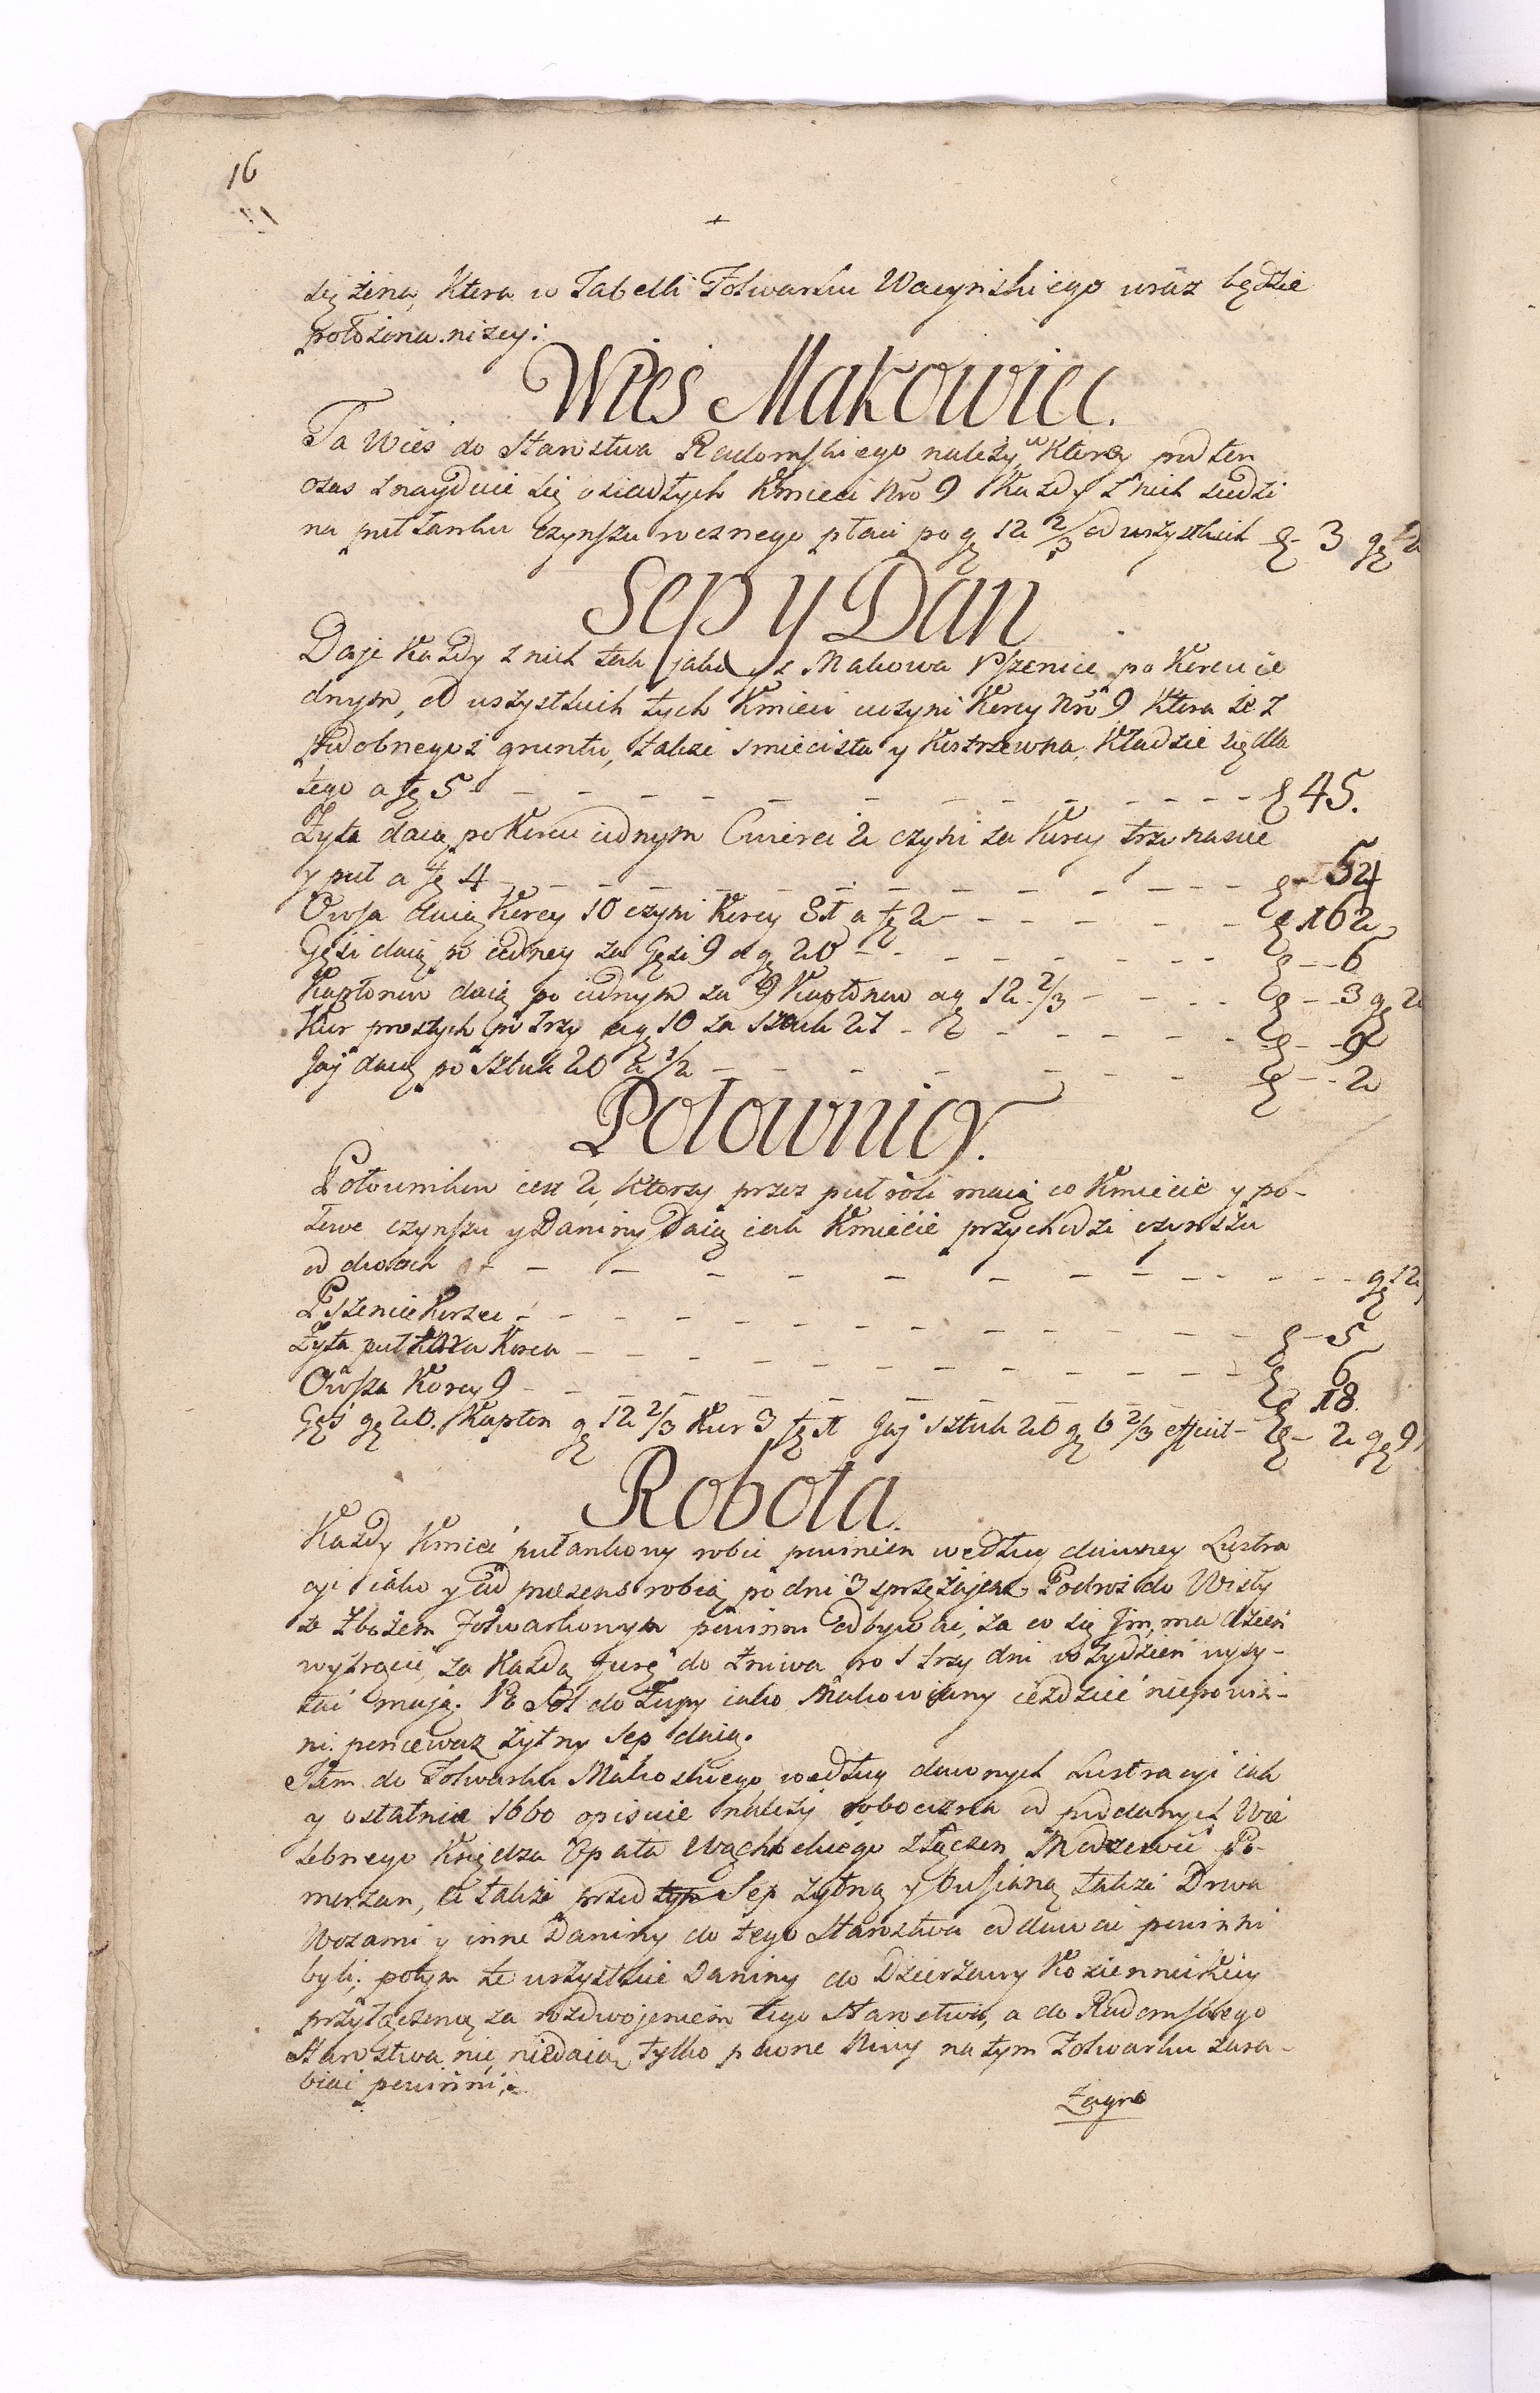 16
się żiena, Ktera w Tabelli Folwarku Wacynskiego wraz będzie
położena niżey:
Wieś Makowiec.
Ta Wieś do Starostwa Radomskiego należy w Ktorey pod ten
czas znayduie się osiadłych Kmieci Nro 9 Każdy z nich siedzi
na puł łanku czynszu rocznego płaci po g 12 2/3 od wszystkich f 3 g 2
Sep y Dan
Daje Każdy z nich tak jako y z Makowa Pszenice po Korcu ie
dnym, od wszystkich tych Kmieci uczyni Korcy Nro 9 Ktera że z
podobnegoż gruntu, także smiecista y Kostrzewna, Kładzie się dla
tego a f 5 - - - f 45.
Żyta daią po Korcu iednym Cwierci 2 czyni za Korcy trzynascie
y puł a f 4 - - - f 54
Owsa daią Korcy 10 czyni Korcy 81 a f 2 - - - f 162
Gęsi daią po iedney za Gęsi 9 a g 20 - - - f - - 6
Kapłonow daią po iednym za 9 Kapłonow a g 12 2/3 - - - f - - 3 g 2
Kur prostych po trzy a g 10 za sztuk 27 - - - f - - 9
Jay daią po sztuk 20 a 1/2 - - - f - - 2
Połownicy.
Połownikow iest 2, Ktorzy przez puł roli maią co Kmiecie y po-
łowe czynszu y Daniny Daią iak Kmiecie przychodzi czynszu
od dwoch - - - g 12
Pszenice Korzec - - - f - 5
Żyta puł tora Korca - - - f 6
Owsza Korcy 9 - - - f 18
Gęś g 20. Kapłon g 12 2/3 Kur 3 f 1 Jay sztuk 20 g 6 2/3 efficit - f - 2 g 9
Robota.
Każdy Kmieć pułankowy robić powinien według dawney Lustra
cyi iako y ad praesens robią po dni 3 sprzężajem Podroż do Wisły
ze Zbożem folwarkowym powinni odbywać, za co się Jm, ma dzień
wytrącić, za Każdą furę do żniwa po 1 trzy dni w Tydzień wysy-
łać mają. Po Sol do Żupy iako Makowiany ieździć niepowin-
ni. poniewaz żytny Sep daią.
Item do Folwarku Makoskiego według dawnych Lustracyi iak
y ostatnia 1660 opisuie należy robocizna od poddanych Wie
lebnego Księdza Opata Wąchockiego z Łączen, Modrzewic Po-
morzan, Ci także przed tym Sep żytną y Owsianą także Drwa
Wozami y inne Daniny do tego Starostwa oddawać powinni
byli; potym te wszystkie Daniny do Dzierżawy Kozienickiey
przyłączeno, za rozdwojeniem tego Starostwa, a do Radomskiego
Starostwa nic niedaią, tylko pewne Niwy na tym Folwarku zara-
biać powinni.
Zagro